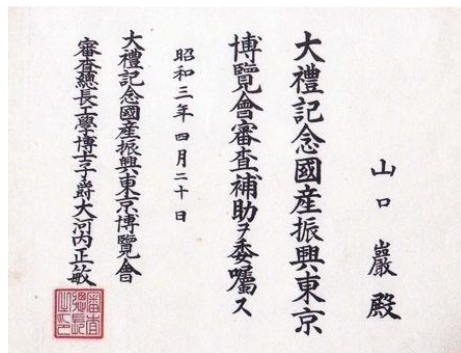 山口巖殿
大禮記念國産振興東京
博覽會審査補助ヲ委囑ス
昭和三年四月二十日
大禮記念國産振興東京博覽會
審査總長工學博士子爵大河内正敏
審査
總長
之印